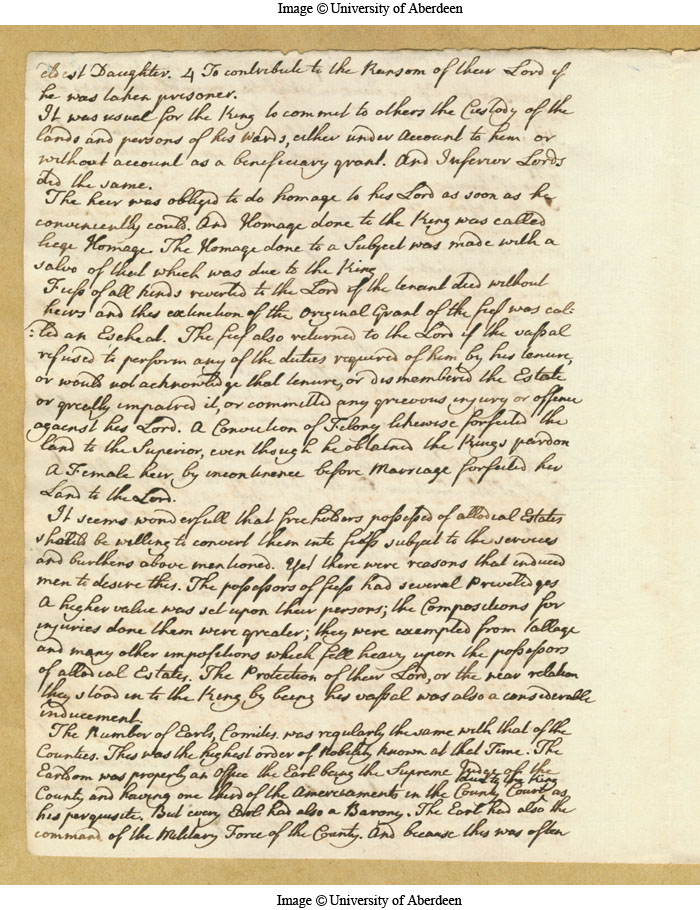 Image © University of Aberdeen
eldest Daughter. 4 To contribute to the Ransom of their Lord if
he was taken prisoner.
It was usual for the King to commit to others the Custody of the
lands and persons of his Wards, either under Account to him or
without account as a beneficiary grant. And Inferior Lords
did the same.
The heir was obliged to do homage to his Lord as soon as he
conveniently could. And Homage done to the King was called
liege Homage. The Homage done to a Subject was made with a
salvo of that which was due to the King
Fiefs of all kinds reverted to the Lord if the tenant died without
heirs and this extinction of the Original Grant of the fief was cal:
:led an Escheat. The fief also returned to the Lord if the vassal
refused to perform any of the duties required of him by his tenure,
or would not acknowledge that tenure, or dismembered the Estate
or greatly impaired it, or committed any grievous injury or offence
against his Lord. A Conviction of Felony likewise forfeited the
land to the Superior, even though he obtained the Kings pardon
A Female heir by incontinence before Marriage forfeited her
Land to the Lord.
It seems wonderfull that freeholders possessed of allodial Estates
should be willing to convert them into fiefs subject to the services
and burthens above mentioned. Yet there were reasons that induced
men to desire this. The possessors of fiefs had several Priviledges
A higher value was set upon their persons; the Compositions for
injuries done them were greater; they were exempted from tallage
and many other impositions which fell heavy upon the possessors
of allodial Estates. The Protection of their Lord, or the near relation
they stood in to the King by being his vassal was also a considerable
inducement.
The Number of Earls, Comites. was regularly the same with that of the
Counties. This was the highest order of Nobility known at that Time. The
Earldom was properly an Office the Earl being the Supreme Judge of the
County and having one third of the Amerciaments due to the King in the County Court as
his perquisite. But every Earl had also a Barony. The Earl had also the
command of the Military Force of the County. And because this was often
Image © University of Aberdeen